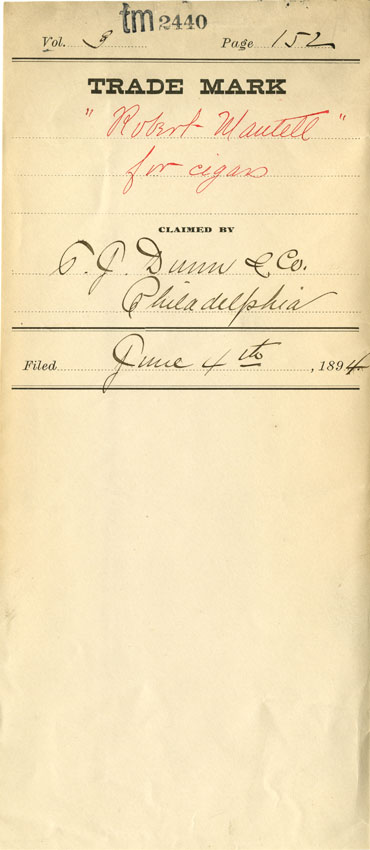 tm 2440
Vol. 3 Page 152
TRADE MARK
"Robert Mantell"
for cigars
CLAIMED BY
T. J. Dunn & Co.
Philadelphia
Filed June 4th, 1894